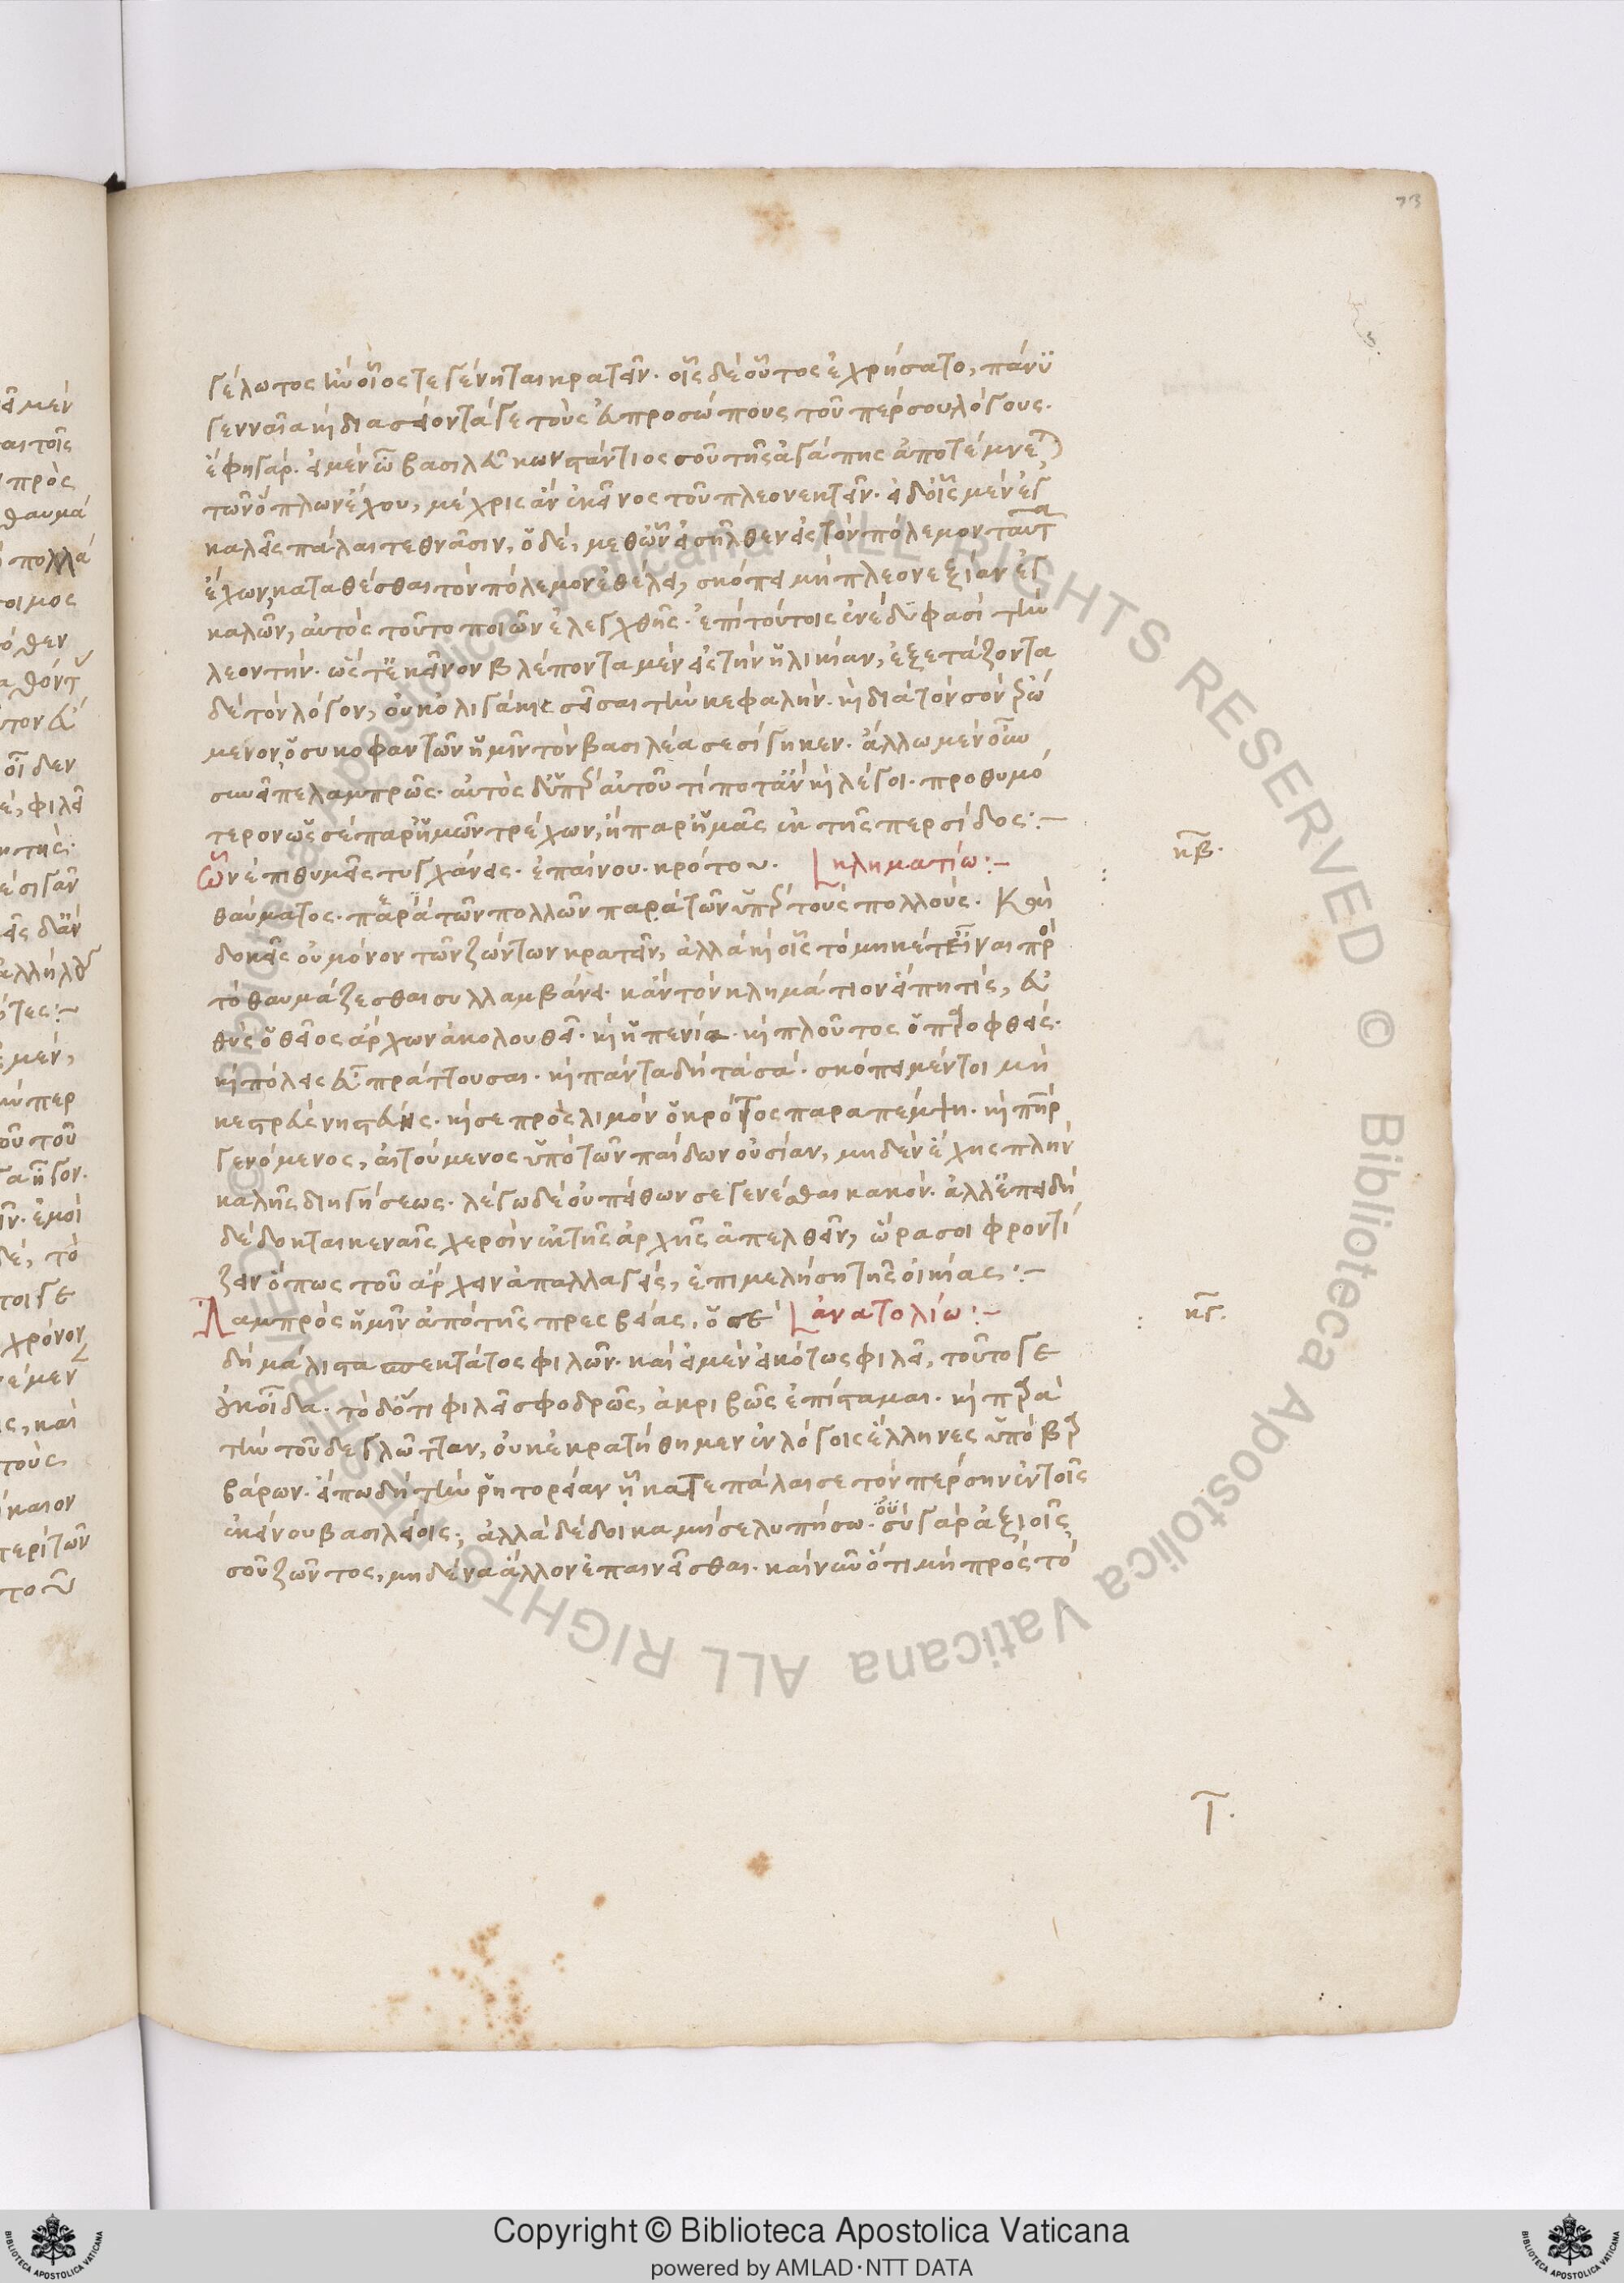 73
γέλωτος ἢν οἷός τε γένηται κρατεῖν. οἷς δὲ οὗτος ἐχρήσατο, πάνυ
γενναῖα καὶ διασείοντά γε τοὺς εὐπροσώπους τοῦ πέρσου λόγους.
ἔφη γάρ. εἰ μὲν ὦ βασιλεῦ κωνστάντιος σοῦ τῆς ἀγάπης ἀποτέμνεται
τῶν ὅπλων ἔχου, μέχρις ἂν ἐκεῖνος τοῦ πλεονεκτεῖν. εἰ δ' οἷς μὲν ἐγ
καλεῖς πάλαι τεθνᾶσιν, ὁ δὲ, μεθ' ὧν εἰσῆλθεν εἰς τὸν πόλεμον ταῦτα
ἔχων, καταθέσθαι τὸν πόλεμον ἐθέλει, σκόπει μὴ πλεονεξίαν ἐγ
καλῶν, αὐτὸς τοῦτο ποιῶν ἐλεγχθῇς. ἐπὶ τούτοις ἐνέδυ φασὶ τὴν
λεοντῆν. ὥς τε κεῖνον βλέποντα μὲν εἰς τὴν ἡλικίαν, ἐξετάζοντα
δὲ τὸν λόγον, οὐκ ὀλιγάκις σεῖσαι τὴν κεφαλήν. καὶ διὰ τὸν σὸν ἐρώ
μενον, ὁ συκοφαντῶν ἡμῖν τὸν βασιλέα σεσίγηκεν. ἄλλῳ μὲν οὖν
συνεῖπε λαμπρῶς. αὐτὸς δ' ὑπὲρ αὑτοῦ τί ποτ' ἂν καὶ λέγοι. προθυμό
τερον ὡς σὲ παρ' ἡμῶν τρέχων, ἢ παρ' ἡμᾶς ἐκ τῆς περσίδος:–
Ὧν ἐπιθυμεῖς τυγχάνεις. ἐπαίνου. κρότου. κληματίῳ:– κβ.
θαύματος. παρὰ τῶν πολλῶν παρὰ τῶν ὑπὲρ τοὺς πολλούς. Καὶ
δοκεῖς οὐ μόνον τῶν ζώντων κρατεῖν, ἀλλὰ καὶ οἷς τὸ μηκέτ' εἶναι πρὸς
τὸ θαυμάζεσθαι συλλαμβάνει. κἂν τὸν κλημάτιον εἴπῃ τις, εὐ
θὺς ὁ θεῖος ἄρχων ἀκολουθεῖ. καὶ ἡ πενία. καὶ πλοῦτος ὁ προφθείς.
καὶ πόλεις εὖ πράττουσαι. καὶ πάντα δὴ τὰ σά. σκόπει μέντοι μὴ
κεστρεὺς νηστεύῃς. καὶ σε πρὸς λιμὸν ὁ κρότος παραπέμψῃ. καὶ πατὴρ
γενόμενος, αἰτούμενος ὑπὸ τῶν παίδων οὐσίαν, μηδὲν ἔχῃς πλὴν
καλῆς διηγήσεως. λέγω δὲ οὐ πείθων σε γενέσθαι κακόν. ἀλλ' ἐπειδὴ
δέδοκται κεναῖς χερσὶν ἐκ τῆς ἀρχῆς ἀπελθεῖν, ὥρα σοι φροντί
ζειν ὅπως τοῦ ἄρχειν ἀπαλλαγεὶς, ἐπιμελήσῃ τῆς οἰκίας:–
Λαμπρὸς ἡμῖν ἀπὸ τῆς πρεσβείας, ὅ σε ἀνατολίῳ:– κγ.
δὴ μάλιστα πεντάτος φιλῶν. καὶ εἰ μὲν εἰκότως φιλεῖ, τοῦτό γε
οὐκ οἶδα. τὸ δ' ὅτι φιλεῖ σφοδρῶς, ἀκριβῶς ἐπίσταμαι. καὶ παρὰ
τὴν τοῦδε γλῶτταν, οὐκ ἐκρατήθημεν ἐν λόγοις ἕλληνες ὑπὸ βαρ
βάρων. εἴπω δὴ τὴν ῥητορείαν ᾗ κατεπάλαισε τὸν πέρσην ἐν τοῖς
ἐκείνου βασιλείοις; ἀλλὰ δέδοικα μή σε λυπήσω. σὺ γὰρ ἀξιοῖς
σοῦ ζῶντος, μηδένα ἄλλον ἐπαινεῖσθαι. καὶ νῦν ὅτι μὴ πρὸς τὸ
Copyright © Biblioteca Apostolica Vaticana
powered by AMLAD·NTT DATA
© Biblioteca Apostolica Vaticana ALL RIGHTS RESERVED © Biblioteca Apostolica Vaticana ALL RIGHTS RESERVED